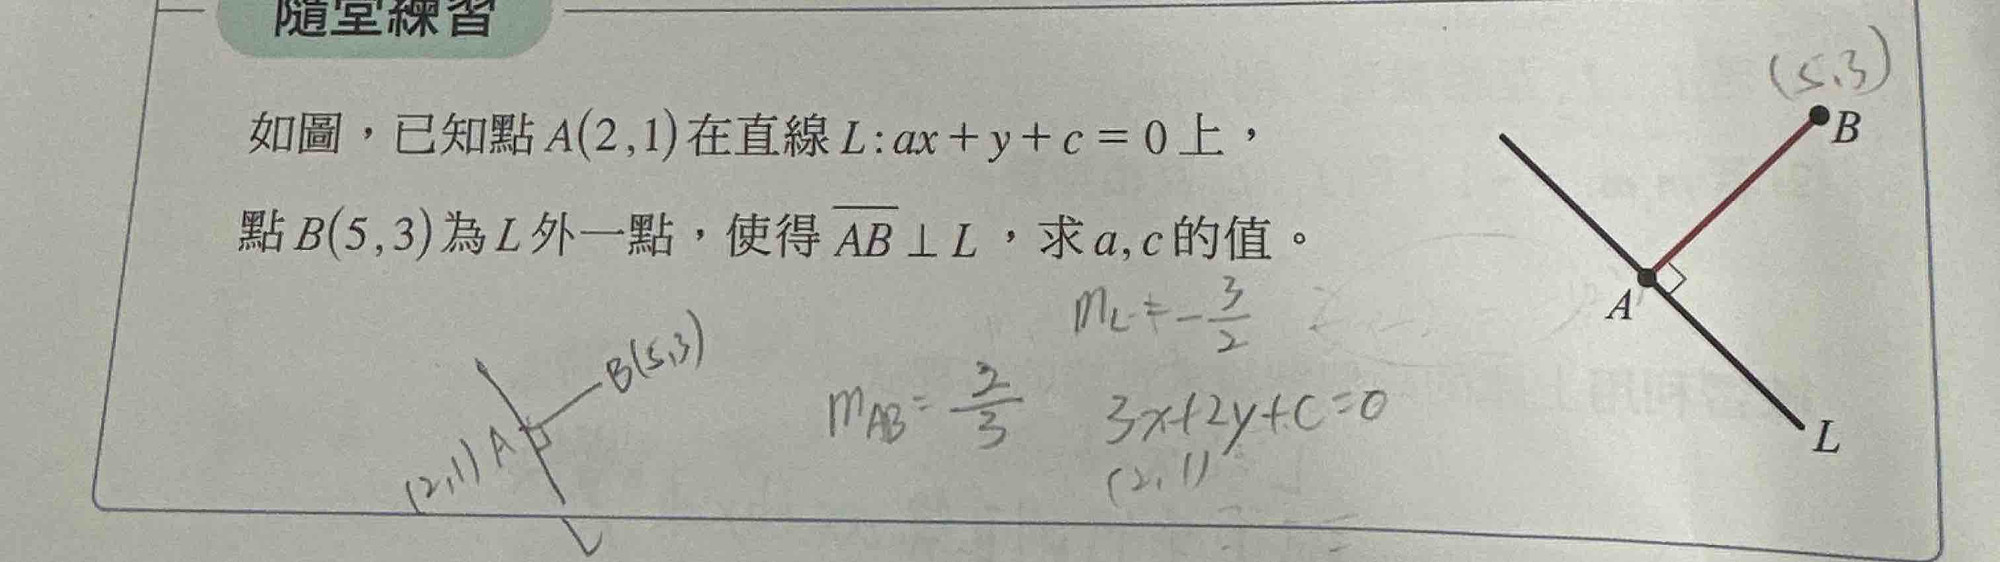 隨堂練習
如圖，已知點A(2,1)在直線L:ax+y+c=0上，
點B(5,3)為L外一點，使得AB⊥L，求a,c的值。
(5,3)
B
A
L
m_L=-3/2
m_AB=2/3
3x+2y+c=0
(2,1)
B(5,3)
(2,1)A
L